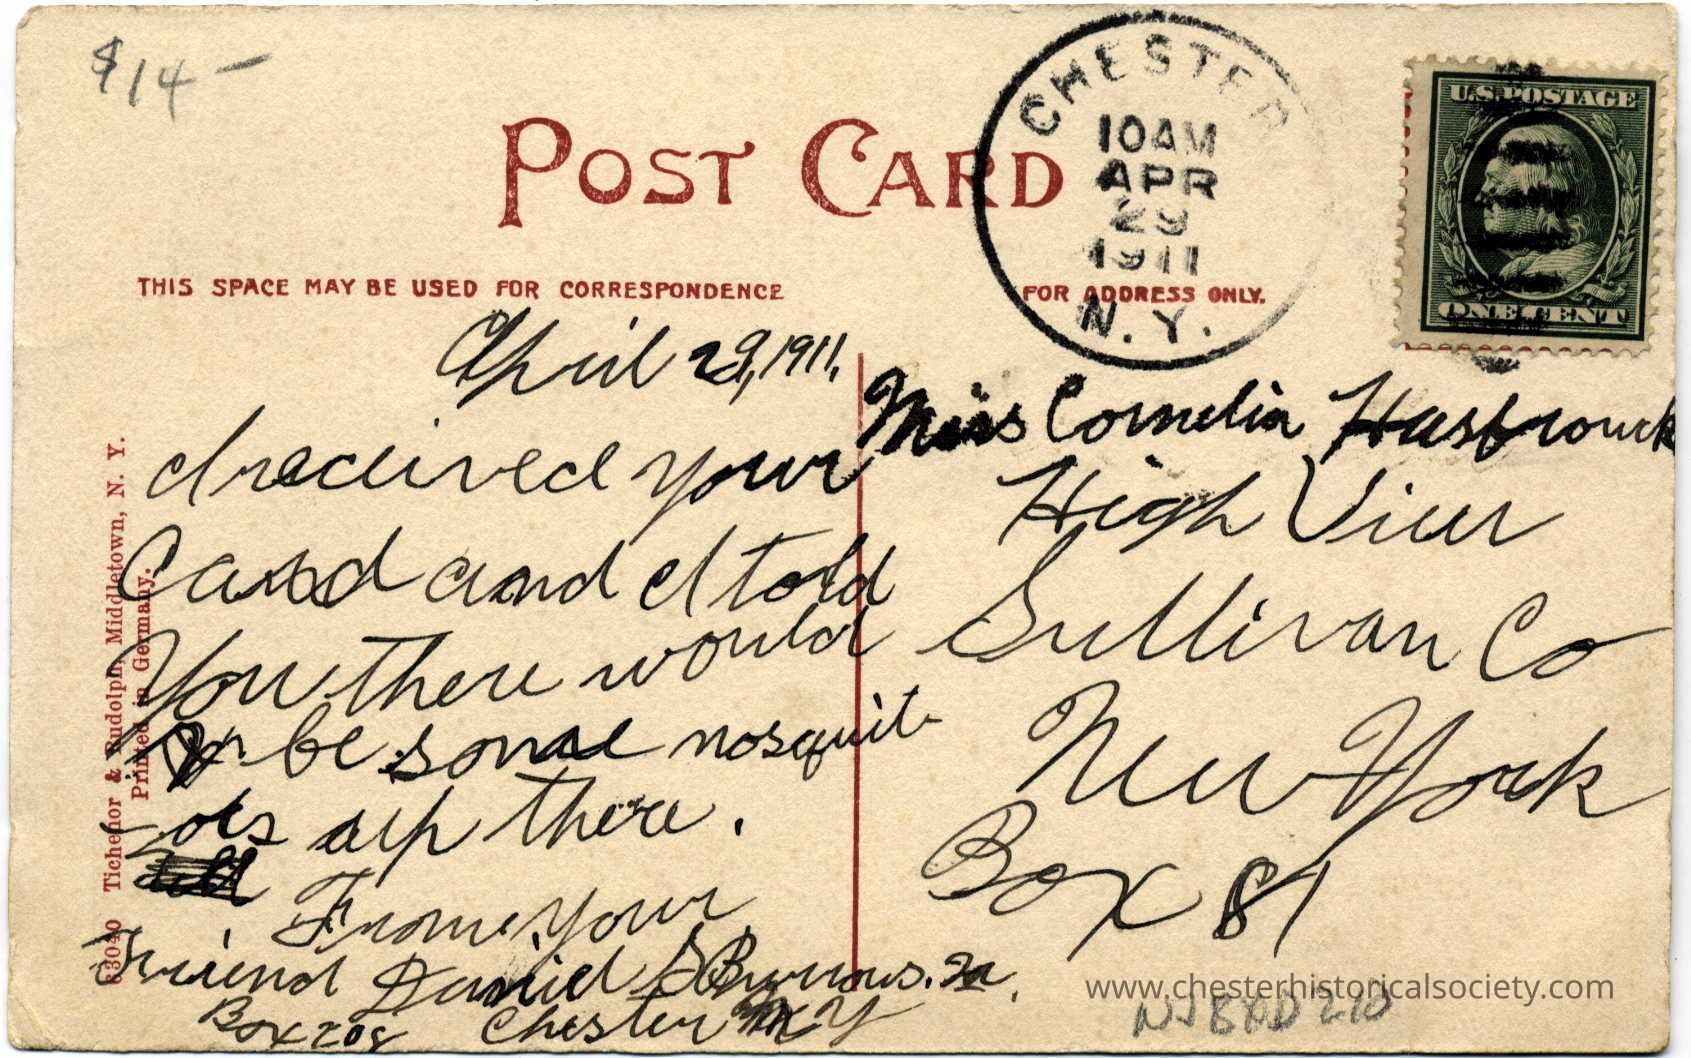 $14 —
POST CARD
CHESTER
10AM
APR
29
1911
N. Y.
U.S. POSTAGE
ONE CENT
THIS SPACE MAY BE USED FOR CORRESPONDENCE
FOR ADDRESS ONLY.
April 29, 1911,
I received your
Card and I told
You there would
be some mosquit-
oes up there.
From your
Friend Daniel S Byrnes. Jr.
Box 208 Chester N Y
Miss Cornelia Hasbrouck
High View
Sullivan Co
New York
Box 81
63040 Tichenor & Rudolph, Middletown, N. Y.
Printed in Germany.
www.chesterhistoricalsociety.com